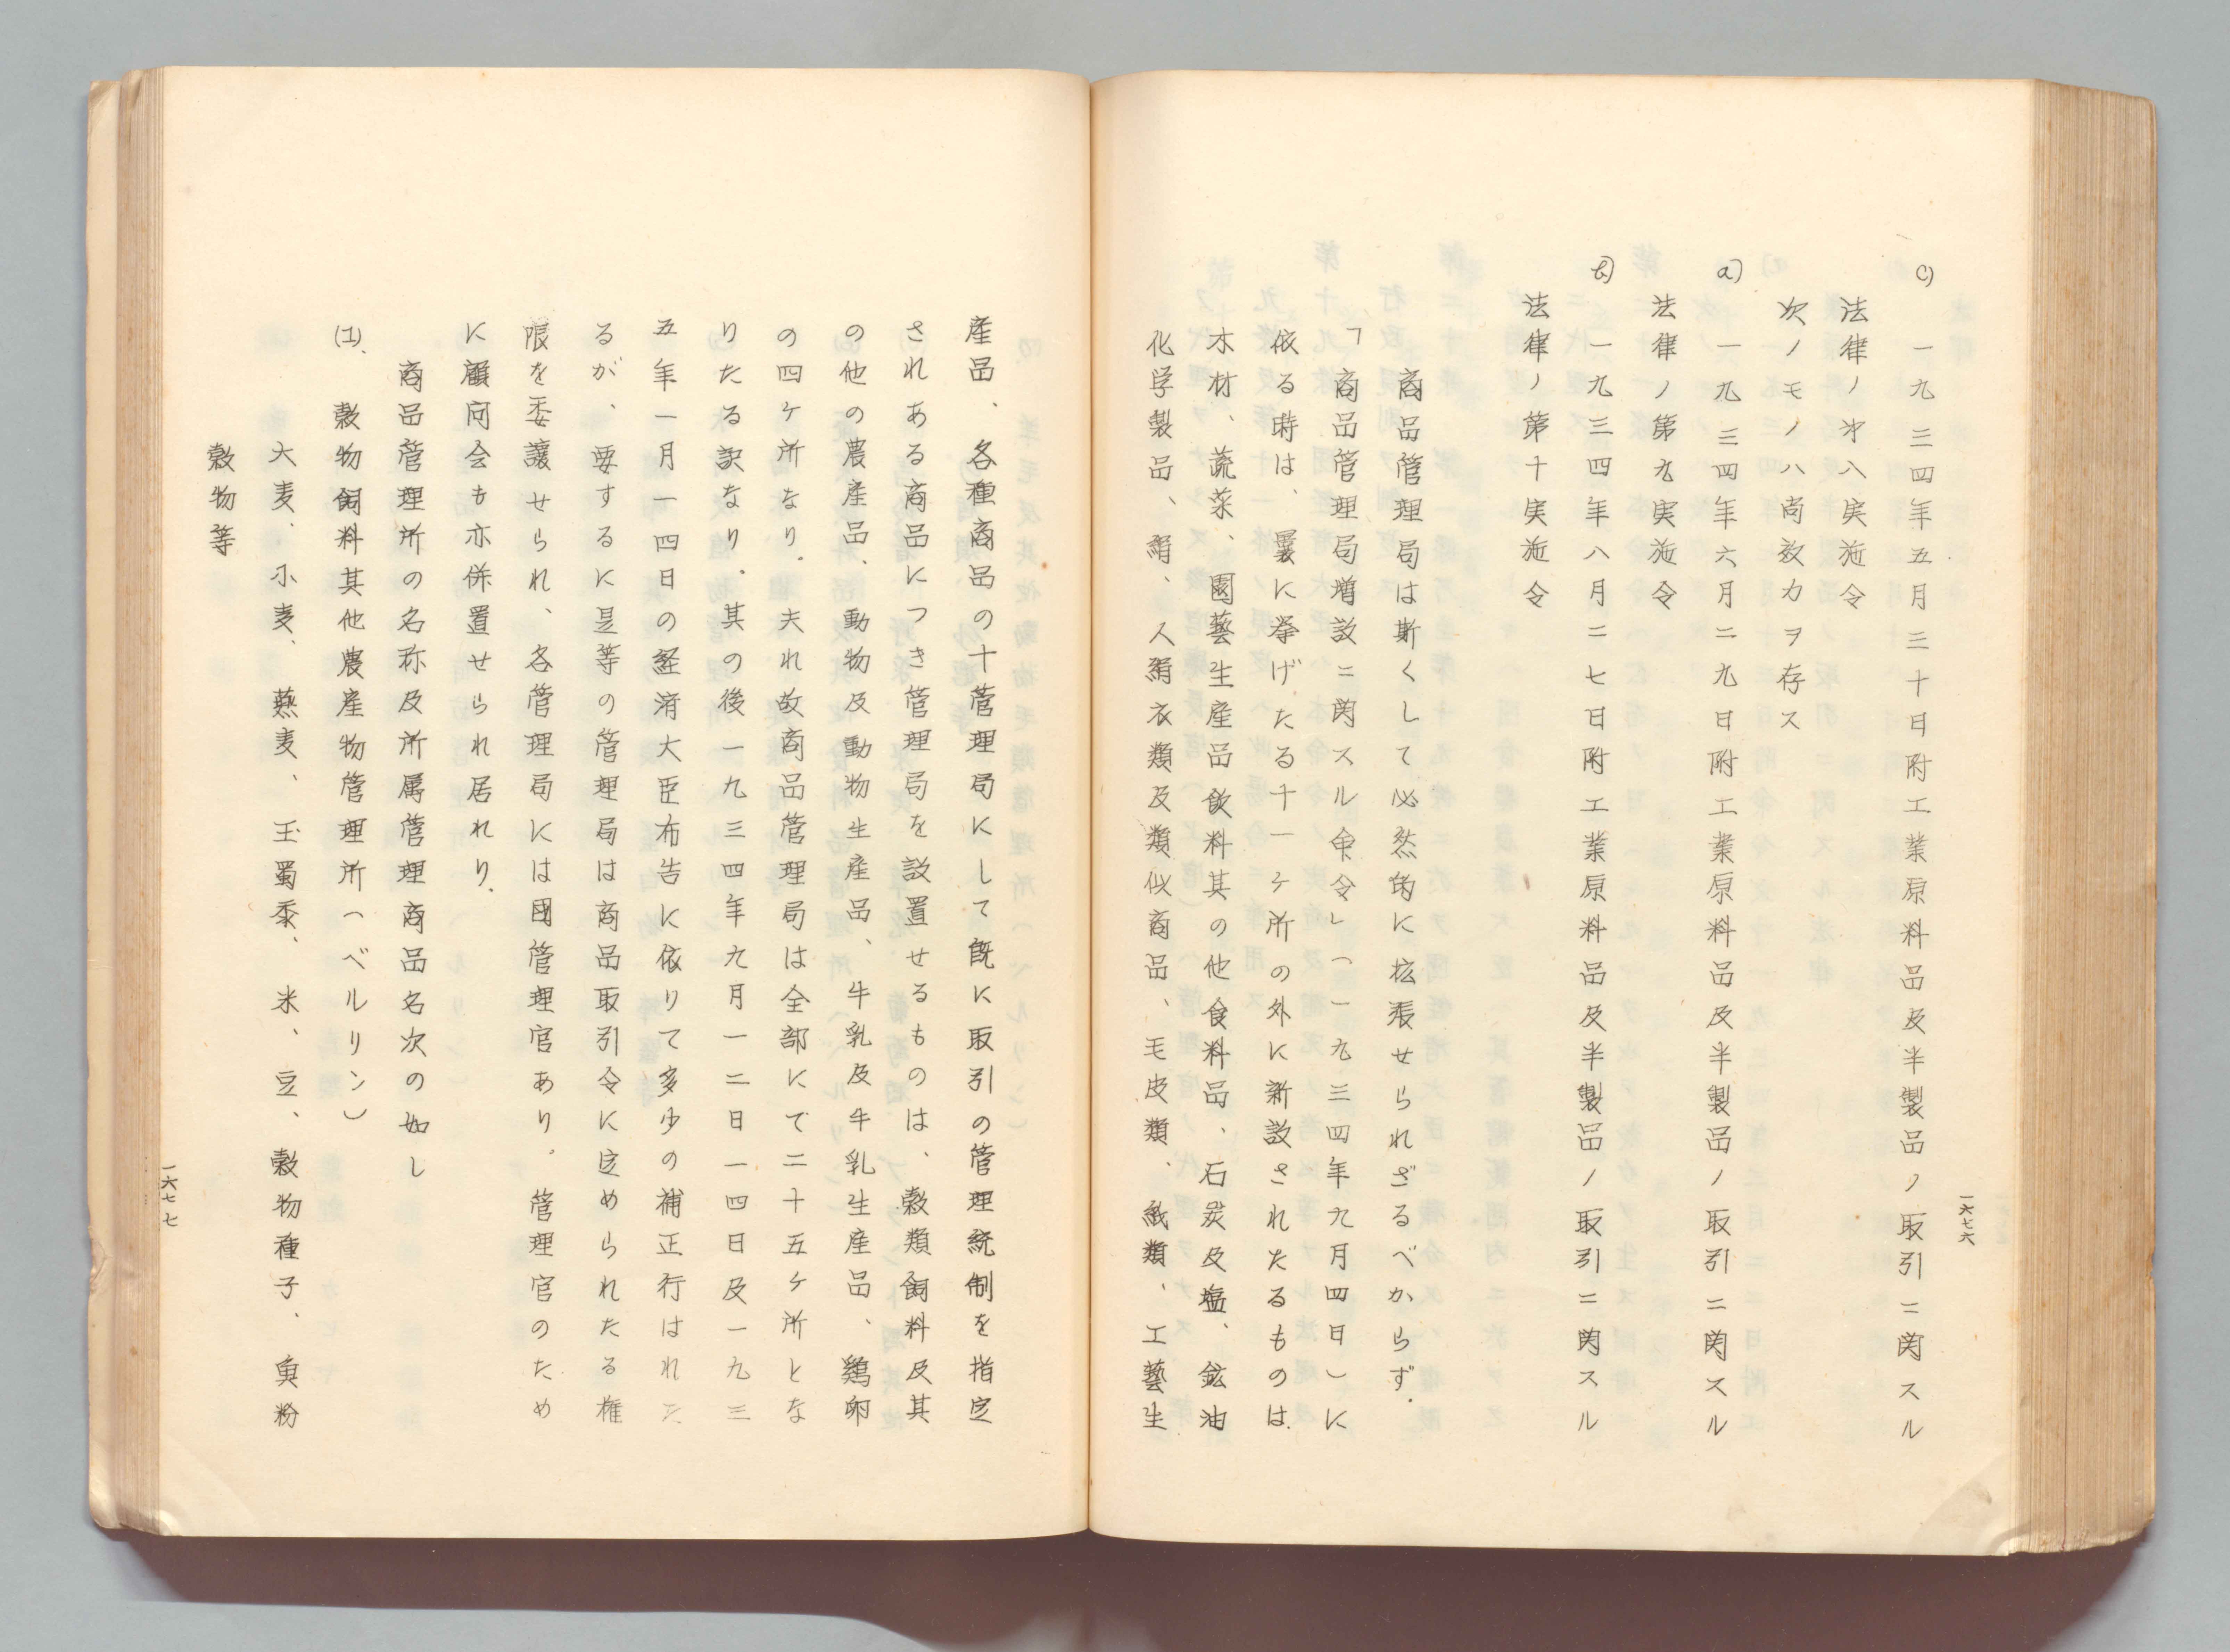 c) 一九三四年五月三十日附工業原料品及半製品ノ取引ニ関スル
法律ノ才八実施令
次ノモノハ尚效力ヲ存ス
a) 一九三四年六月二九日附工業原料品及半製品ノ取引ニ関スル
法律ノ第九実施令
b) 一九三四年八月二七日附工業原料品及半製品ノ取引ニ関スル
法律ノ第十実施令
商品管理局は斯くして必然的に拡張せられざるべからず.
「商品管理局増設ニ関スル命令」(一九三四年九月四日)に
依る時は、曩に挙げたる十一ヶ所の外に新設されたるものは.
木材、蔬菜、園藝生産品飲料其の他食料品、石炭及塩、鉱油
化学製品、絹、人絹衣類及類似商品、毛皮類、紙類、工藝生
一六七六
産品、各種商品の十管理局にして既に取引の管理統制を指定
されある商品につき管理局を設置せるものは、穀類飼料及其
の他の農産品、動物及動物生産品、牛乳及牛乳生産品、鶏卵
の四ヶ所なり。夫れ故商品管理局は全部にて二十五ヶ所とな
りたる訳なり。其の後一九三四年九月一二日一四日及一九三
五年一月一四日の経済大臣布告に依りて多少の補正行はれた
るが、要するに是等の管理局は商品取引令に定められたる権
限を委譲せられ、各管理局には国管理官あり。管理官のため
に顧问会も亦併置せられ居れり.
商品管理所の名称及所属管理商品名次の如し
(1)、穀物飼料其他農産物管理所(ベルリン)
大麦、小麦、燕麦、玉蜀黍、米、豆、穀物種子、魚粉
穀物等
一六七七